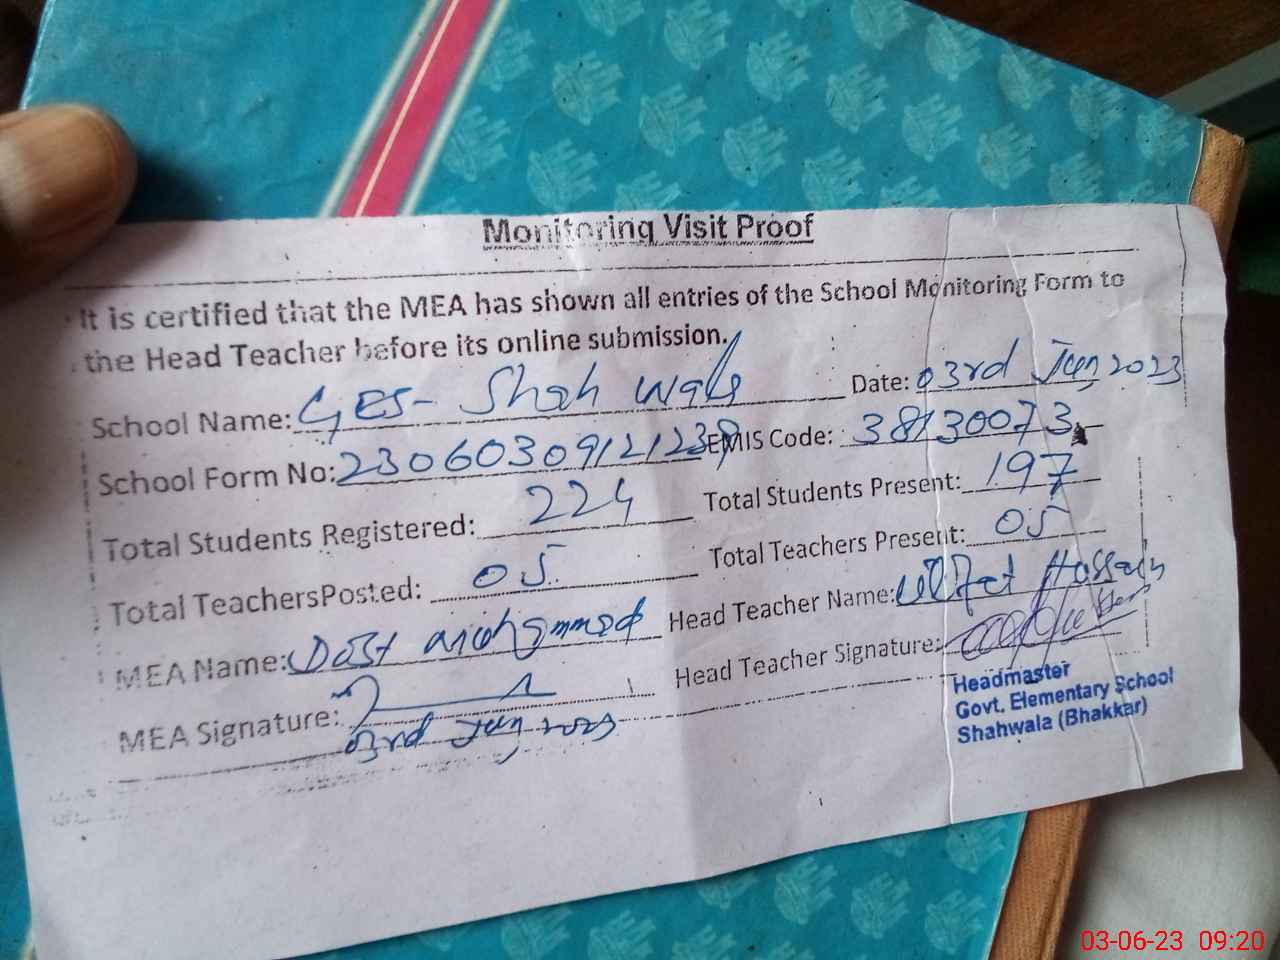 Monitoring Visit Proof
It is certified that the MEA has shown all entries of the School Monitoring Form to
the Head Teacher before its online submission.
School Name: GES- Shah Wala Date: 03rd Jun, 2023
School Form No: 23060309121239 EMIS Code: 38130073
Total Students Registered: 224 Total Students Present: 197
Total TeachersPosted: 05 Total Teachers Present: 05
MEA Name: Dost Mohammad Head Teacher Name: Ulfat Hussain
MEA Signature: Head Teacher Signature:
03rd Jun, 2023
Headmaster
Govt. Elementary School
Shahwala (Bhakkar)
03-06-23 09:20